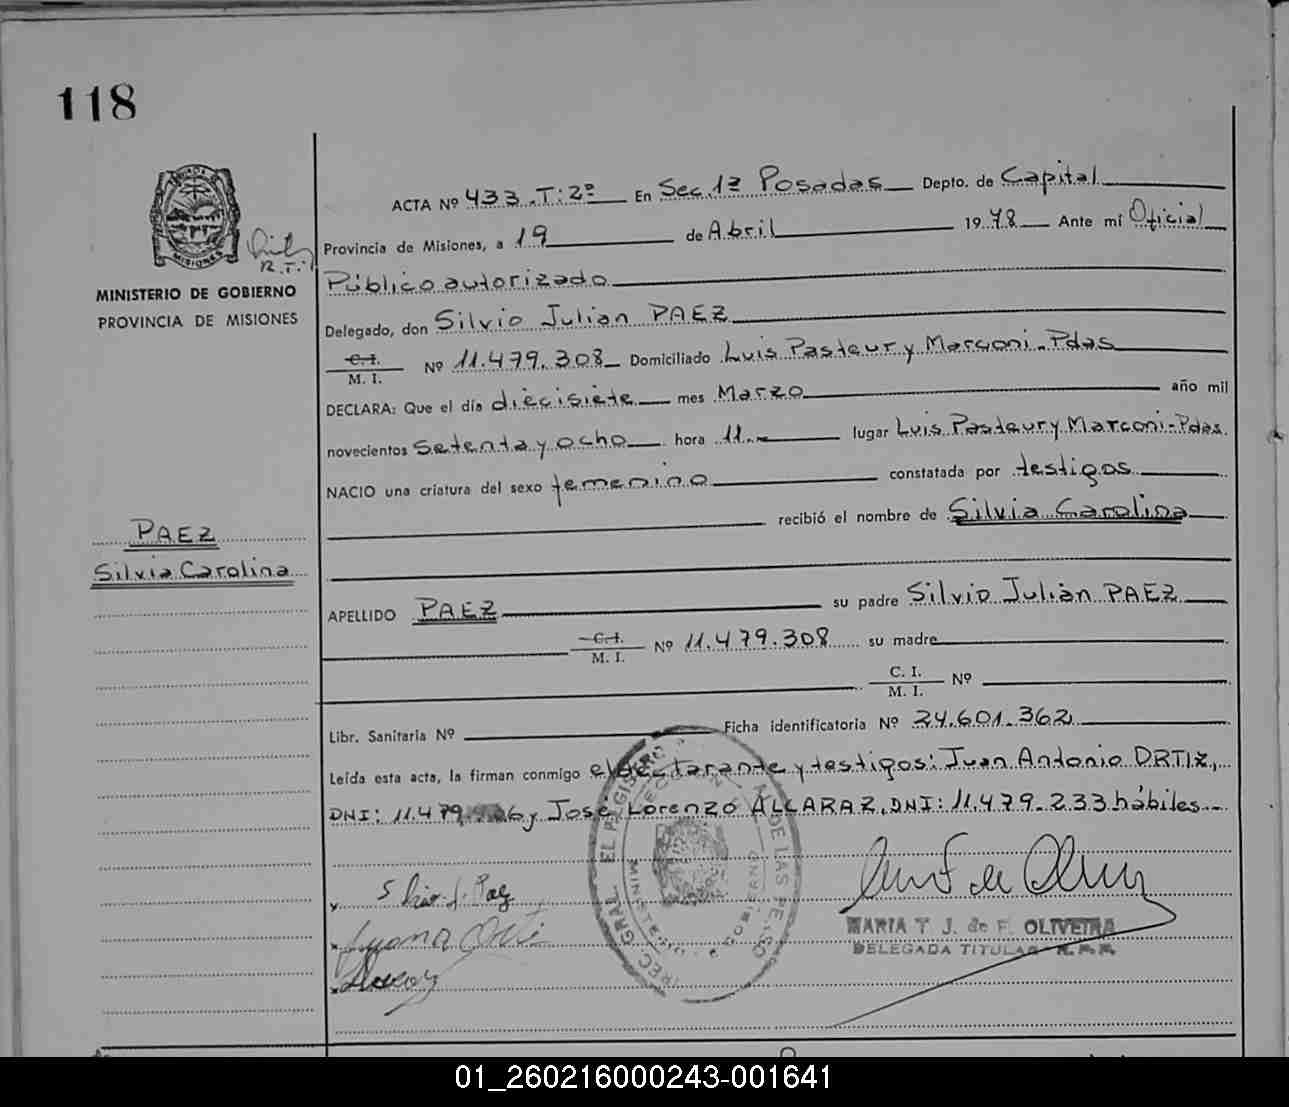 118
ACTA Nº 433.T:2º En Sec.1ª Posadas Depto. de Capital
Provincia de Misiones, a 19 de Abril 1978 Ante mí Oficial
Público autorizado
Delegado, don Silvio Julian PAEZ
C.I. M. I. Nº 11.479.308 Domiciliado Luis Pasteur y Marconi-Pdas
DECLARA: Que el día diecisiete mes Marzo año mil
novecientos setenta y ocho hora 11.- lugar Luis Pasteur y Marconi-Pdas.
NACIO una criatura del sexo femenino constatada por testigos
recibió el nombre de Silvia Carolina
APELLIDO PAEZ su padre Silvio Julián PAEZ
C.I. M. I. Nº 11.479.308 su madre
C. I. M. I. Nº
Libr. Sanitaria Nº Ficha identificatoria Nº 24.601.362
Leída esta acta, la firman conmigo el declarante y testigos: Juan Antonio ORTIZ,
DNI: 11.479. y José Lorenzo ALCARAZ, DNI: 11.479.233 hábiles.-
MISIONES
R.T.
MINISTERIO DE GOBIERNO
PROVINCIA DE MISIONES
PAEZ
Silvia Carolina
GRAL. EL REGISTRO DE LAS PERSO
MINISTERIO GOBIERNO
MARIA T J. de F. OLIVEIRA
DELEGADA TITULAR R.P.P.
01_260216000243-001641